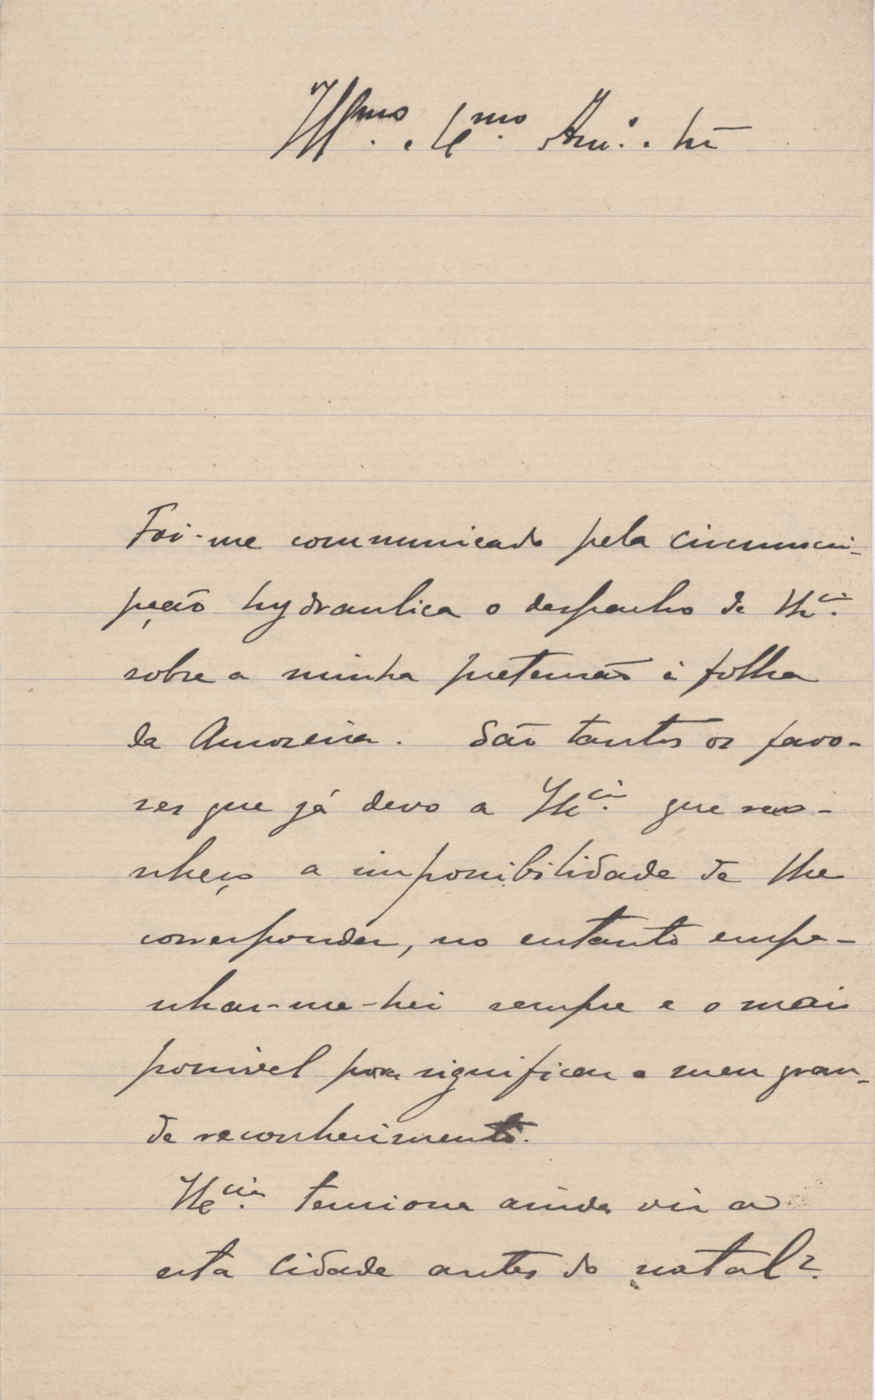 Illmo. Exmo Amo. e Sr.
Foi-me communicado pela circumscri-
pção hydraulica o despacho de V. Excia.
sobre a minha pretensão á folha
da Amoreira. São tantos os favo-
res que já devo a V. Excia. que reco-
nheço a impossibilidade de lhe
corresponder, no entanto empe-
nhar-me-hei sempre e o mais
possivel por significar o meu gran-
de reconhecimento.
V. Excia. tenciona ainda vir a
esta cidade antes do natal?